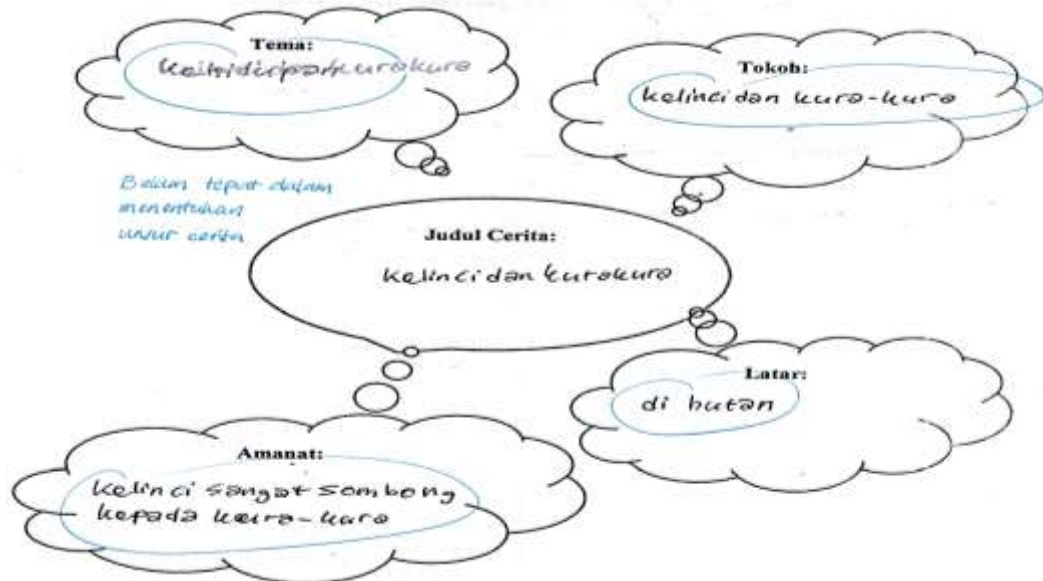 Tema:
kurakura
Tokoh:
kelinci dan kura-kura
Belum tepat dalam
menentukan
unsur cerita
Judul Cerita:
kelinci dan kurakura
Latar:
di hutan
Amanat:
kelinci sangat sombong
kepada kura-kura